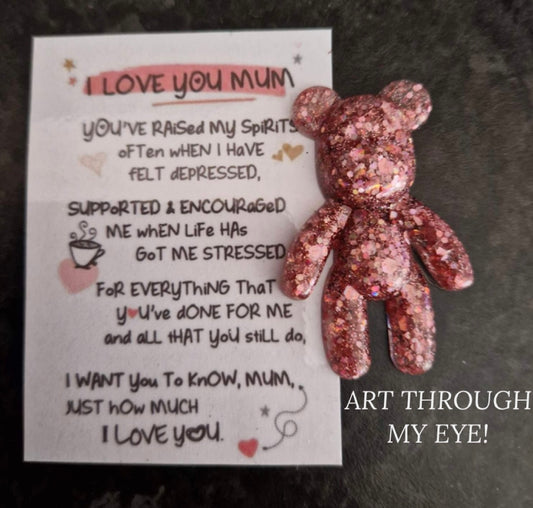 I LOVE YOU MUM
YOU'VE RAiSed MY SpiRiTS
oFTen wHEN I HaVE
fELT dEPRESSED,
SUPPoRTED & ENCOURaGeD
ME whEN LiFe HAs
GoT ME STRESSED
FoR EVERyThiNG ThaT
yoU've dONE FOR ME
and aLL tHAT YoU stiLL do,
I WANT You To KnOW, MUM,
JUST hOw MUCH
I LOVE yoU.
ART THROUGH
MY EYE!